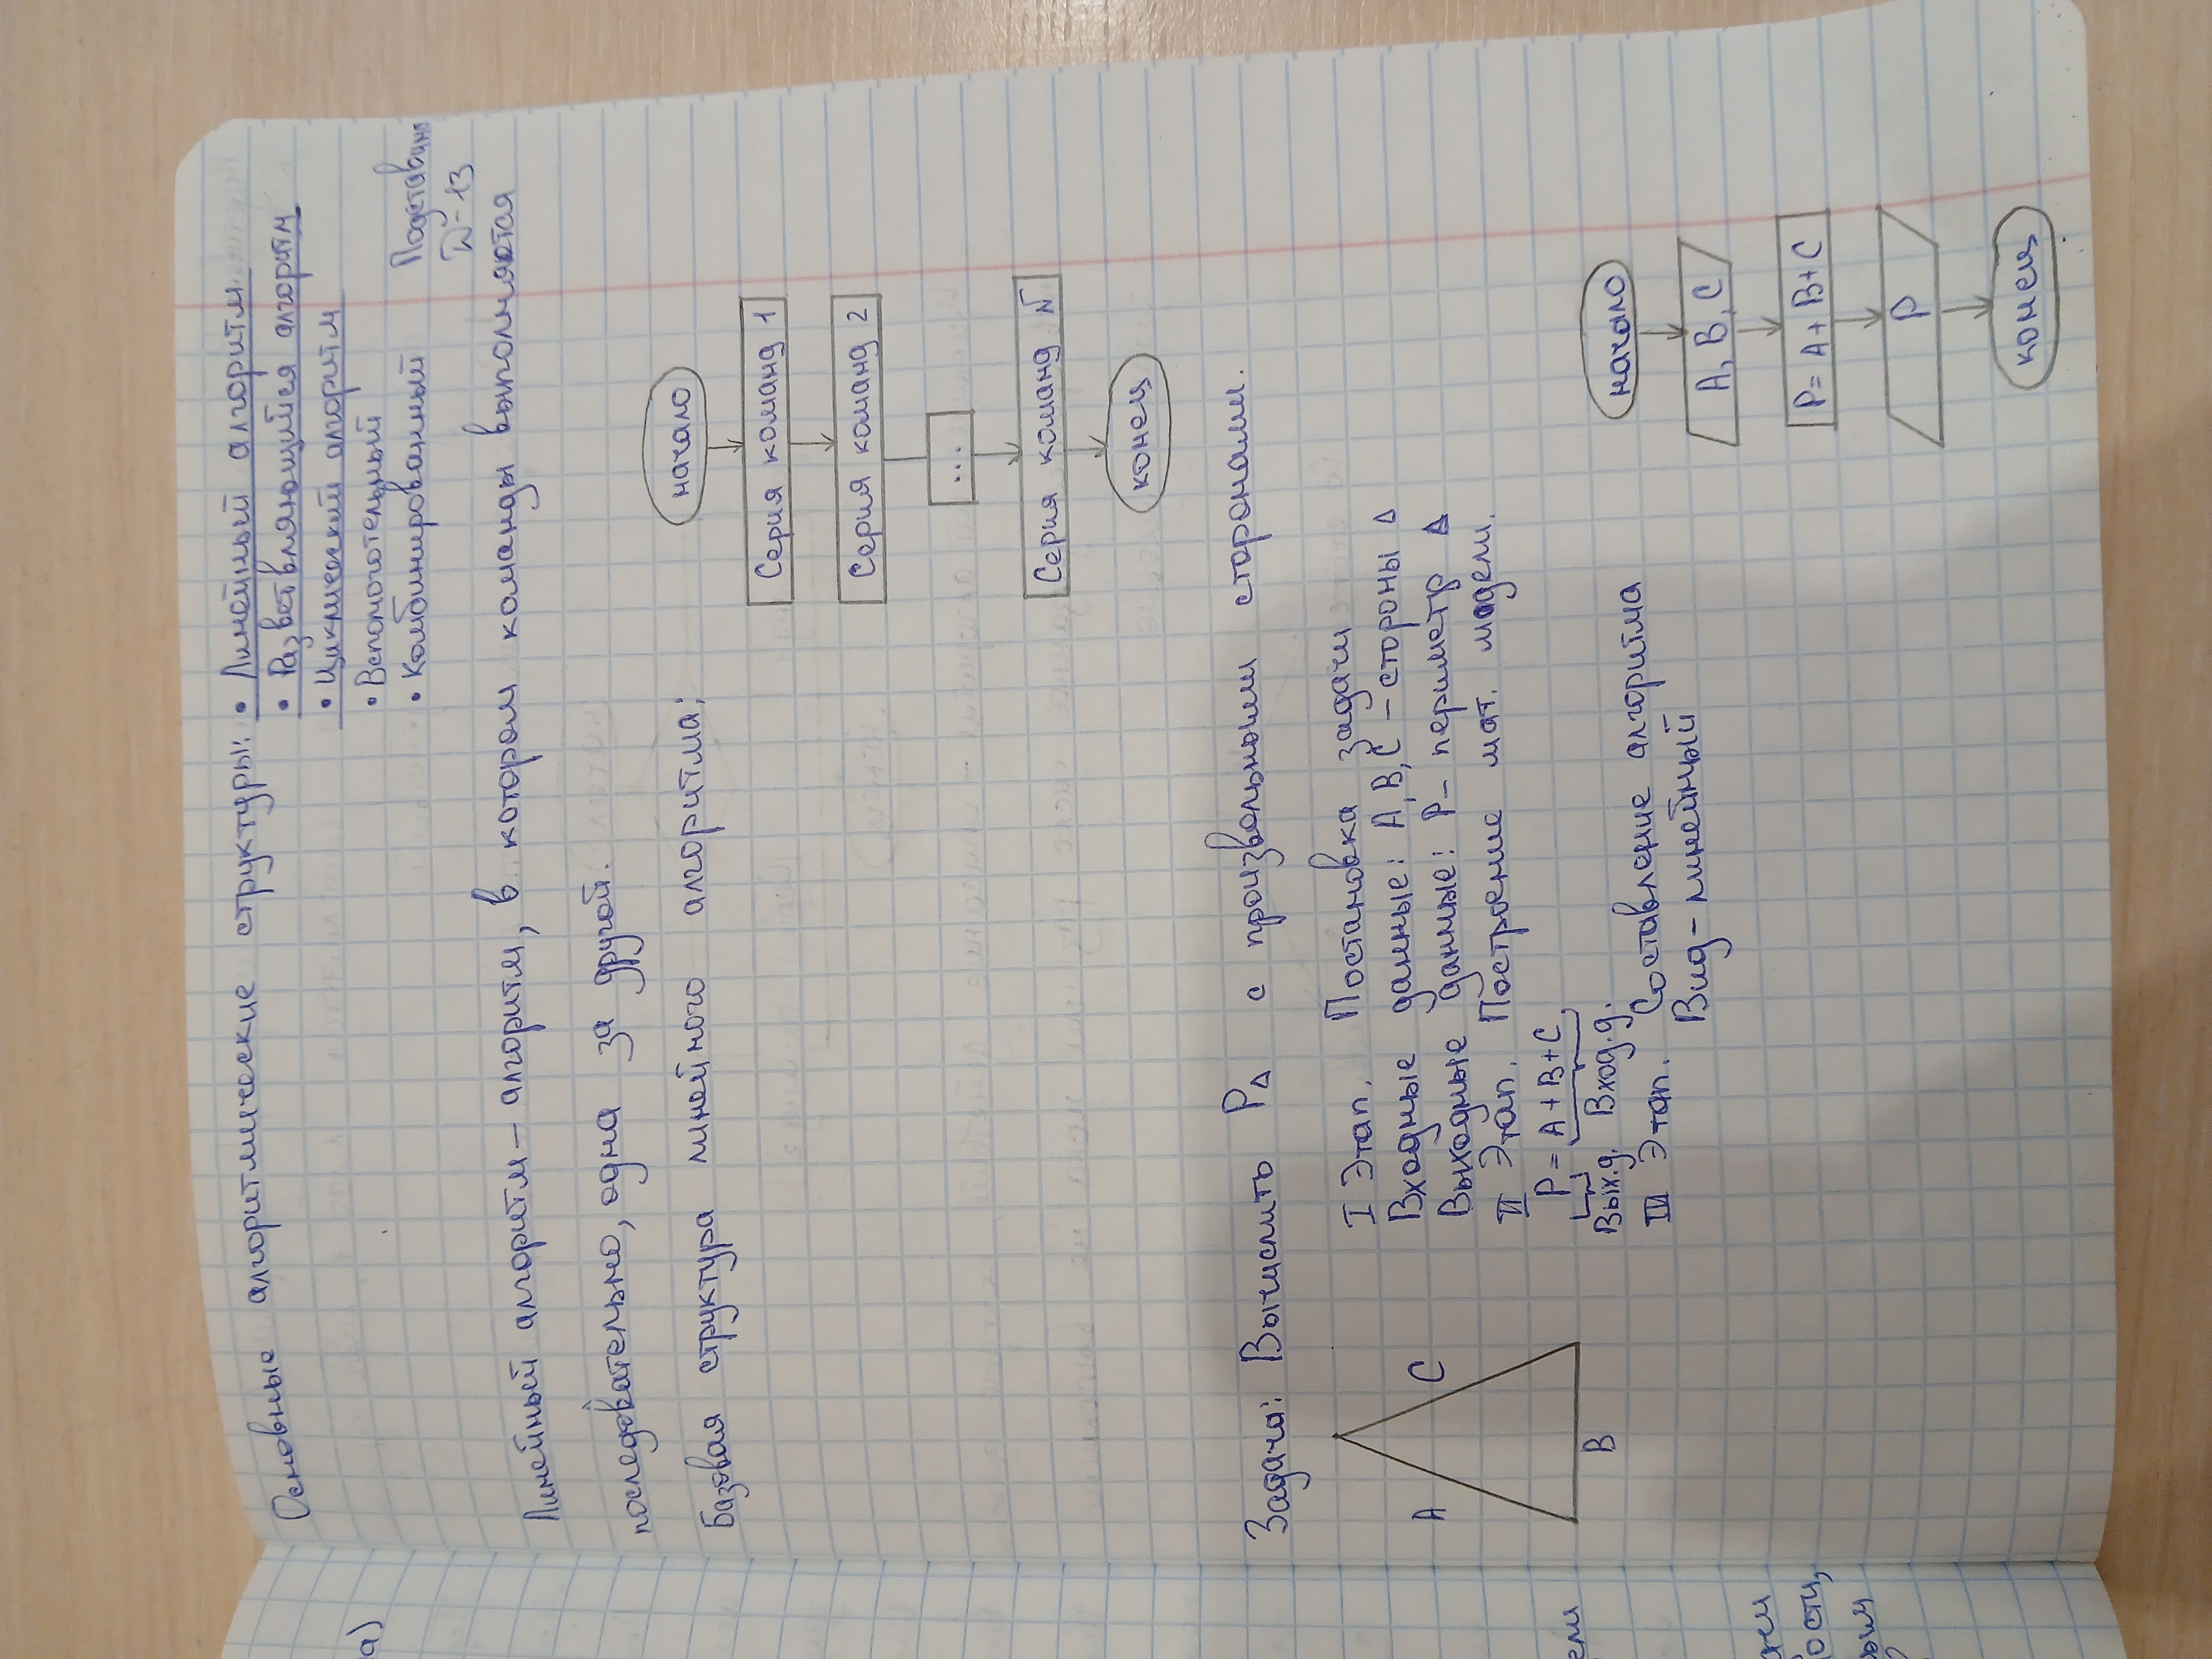 Основные алгоритмические структуры: • Линейный алгоритм.
• Разветвляющийся алгоритм
• Циклический алгоритм
• Вспомогательный
• Комбинированный
D-13
Линейный алгоритм – алгоритм, в котором команды выполняются
последовательно, одна за другой.
Базовая структура линейного алгоритма:
начало
Серия команд 1
Серия команд 2
...
Серия команд N
конец
Задача: Вычислить P△ с произвольными сторонами.
A C
B
I Этап. Постановка задачи
Входные данные: A, B, C – стороны △
Выходные данные: P – периметр △
II Этап. Построение мат. модели.
P = A + B + C
Вых.д. Вход.д.
III Этап. Составление алгоритма
Вид – линейный
начало
A, B, C
P = A + B + C
P
конец
а)
ости,